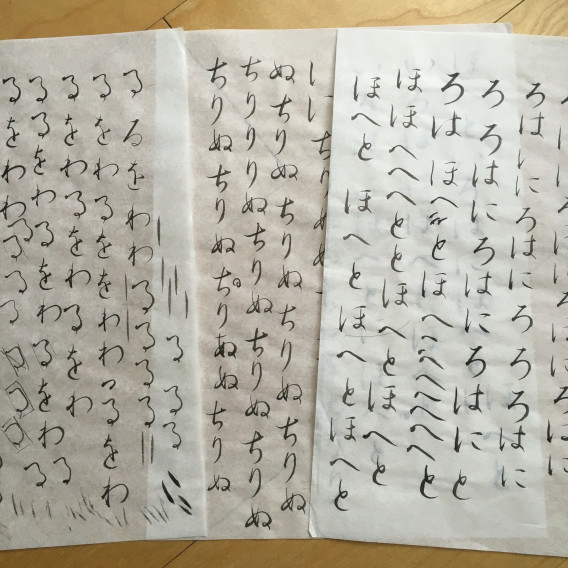 ろはにろはにろろはに
ろろはにろはにはにと
ろはほへとほへへへへへと
ほほへへへととほへとほへと
ほへとほへとほへとほへと
ぬちりぬちりぬちりぬちりぬ
ちりりりぬちりぬちりぬちりぬ
ちりぬちりぬちりぬぬちりぬ
るるるる
るるをわわるるるるる
るをわるををわわるるをわ
るるをわるをわるをわる
るるをわるるをわるをわる
るをわわるるる